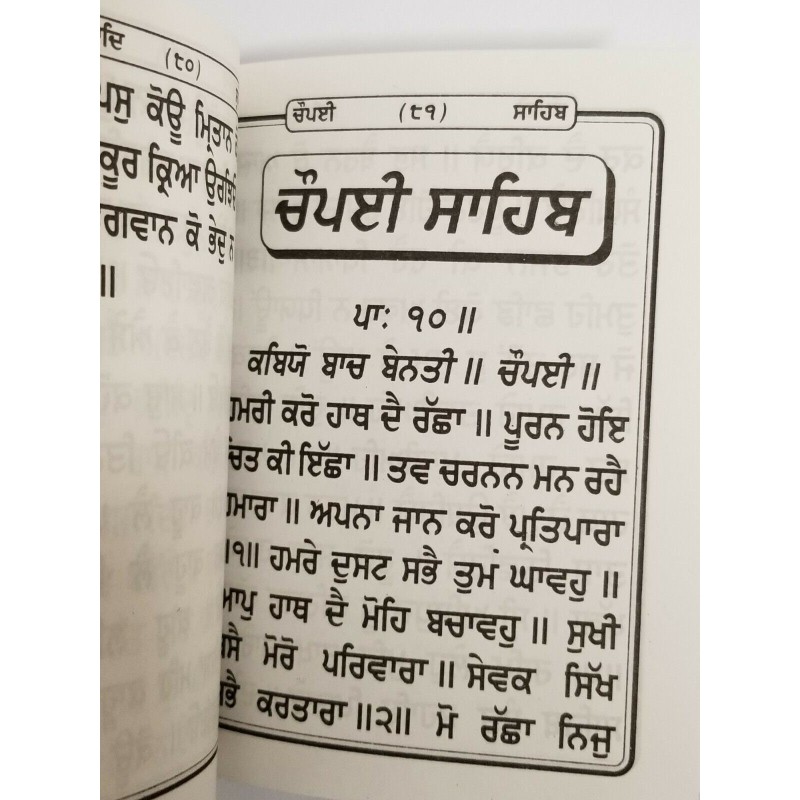 (੯੦)
ਕੋਊ ਮ੍ਰਿਤਾਨ
ਕੂਰ ਕ੍ਰਿਆ
ਕੋ ਭੇਦੁ ਨ
॥
ਚੌਪਈ (੯੧) ਸਾਹਿਬ
ਚੌਪਈ ਸਾਹਿਬ
ਪਾ: ੧੦ ॥
ਕਬਿਯੋ ਬਾਚ ਬੇਨਤੀ ॥ ਚੌਪਈ ॥
ਹਮਰੀ ਕਰੋ ਹਾਥ ਦੈ ਰੱਛਾ ॥ ਪੂਰਨ ਹੋਇ
ਚਿੱਤ ਕੀ ਇੱਛਾ ॥ ਤਵ ਚਰਨਨ ਮਨ ਰਹੈ
ਹਮਾਰਾ ॥ ਅਪਨਾ ਜਾਨ ਕਰੋ ਪ੍ਰਤਿਪਾਰਾ
॥੧॥ ਹਮਰੇ ਦੁਸਟ ਸਭੈ ਤੁਮ ਘਾਵਹੁ ॥
ਆਪੁ ਹਾਥ ਦੈ ਮੋਹਿ ਬਚਾਵਹੁ ॥ ਸੁਖੀ
ਬਸੈ ਮੋਰੋ ਪਰਿਵਾਰਾ ॥ ਸੇਵਕ ਸਿੱਖ
ਸਭੈ ਕਰਤਾਰਾ ॥੨॥ ਮੋ ਰੱਛਾ ਨਿਜੁ